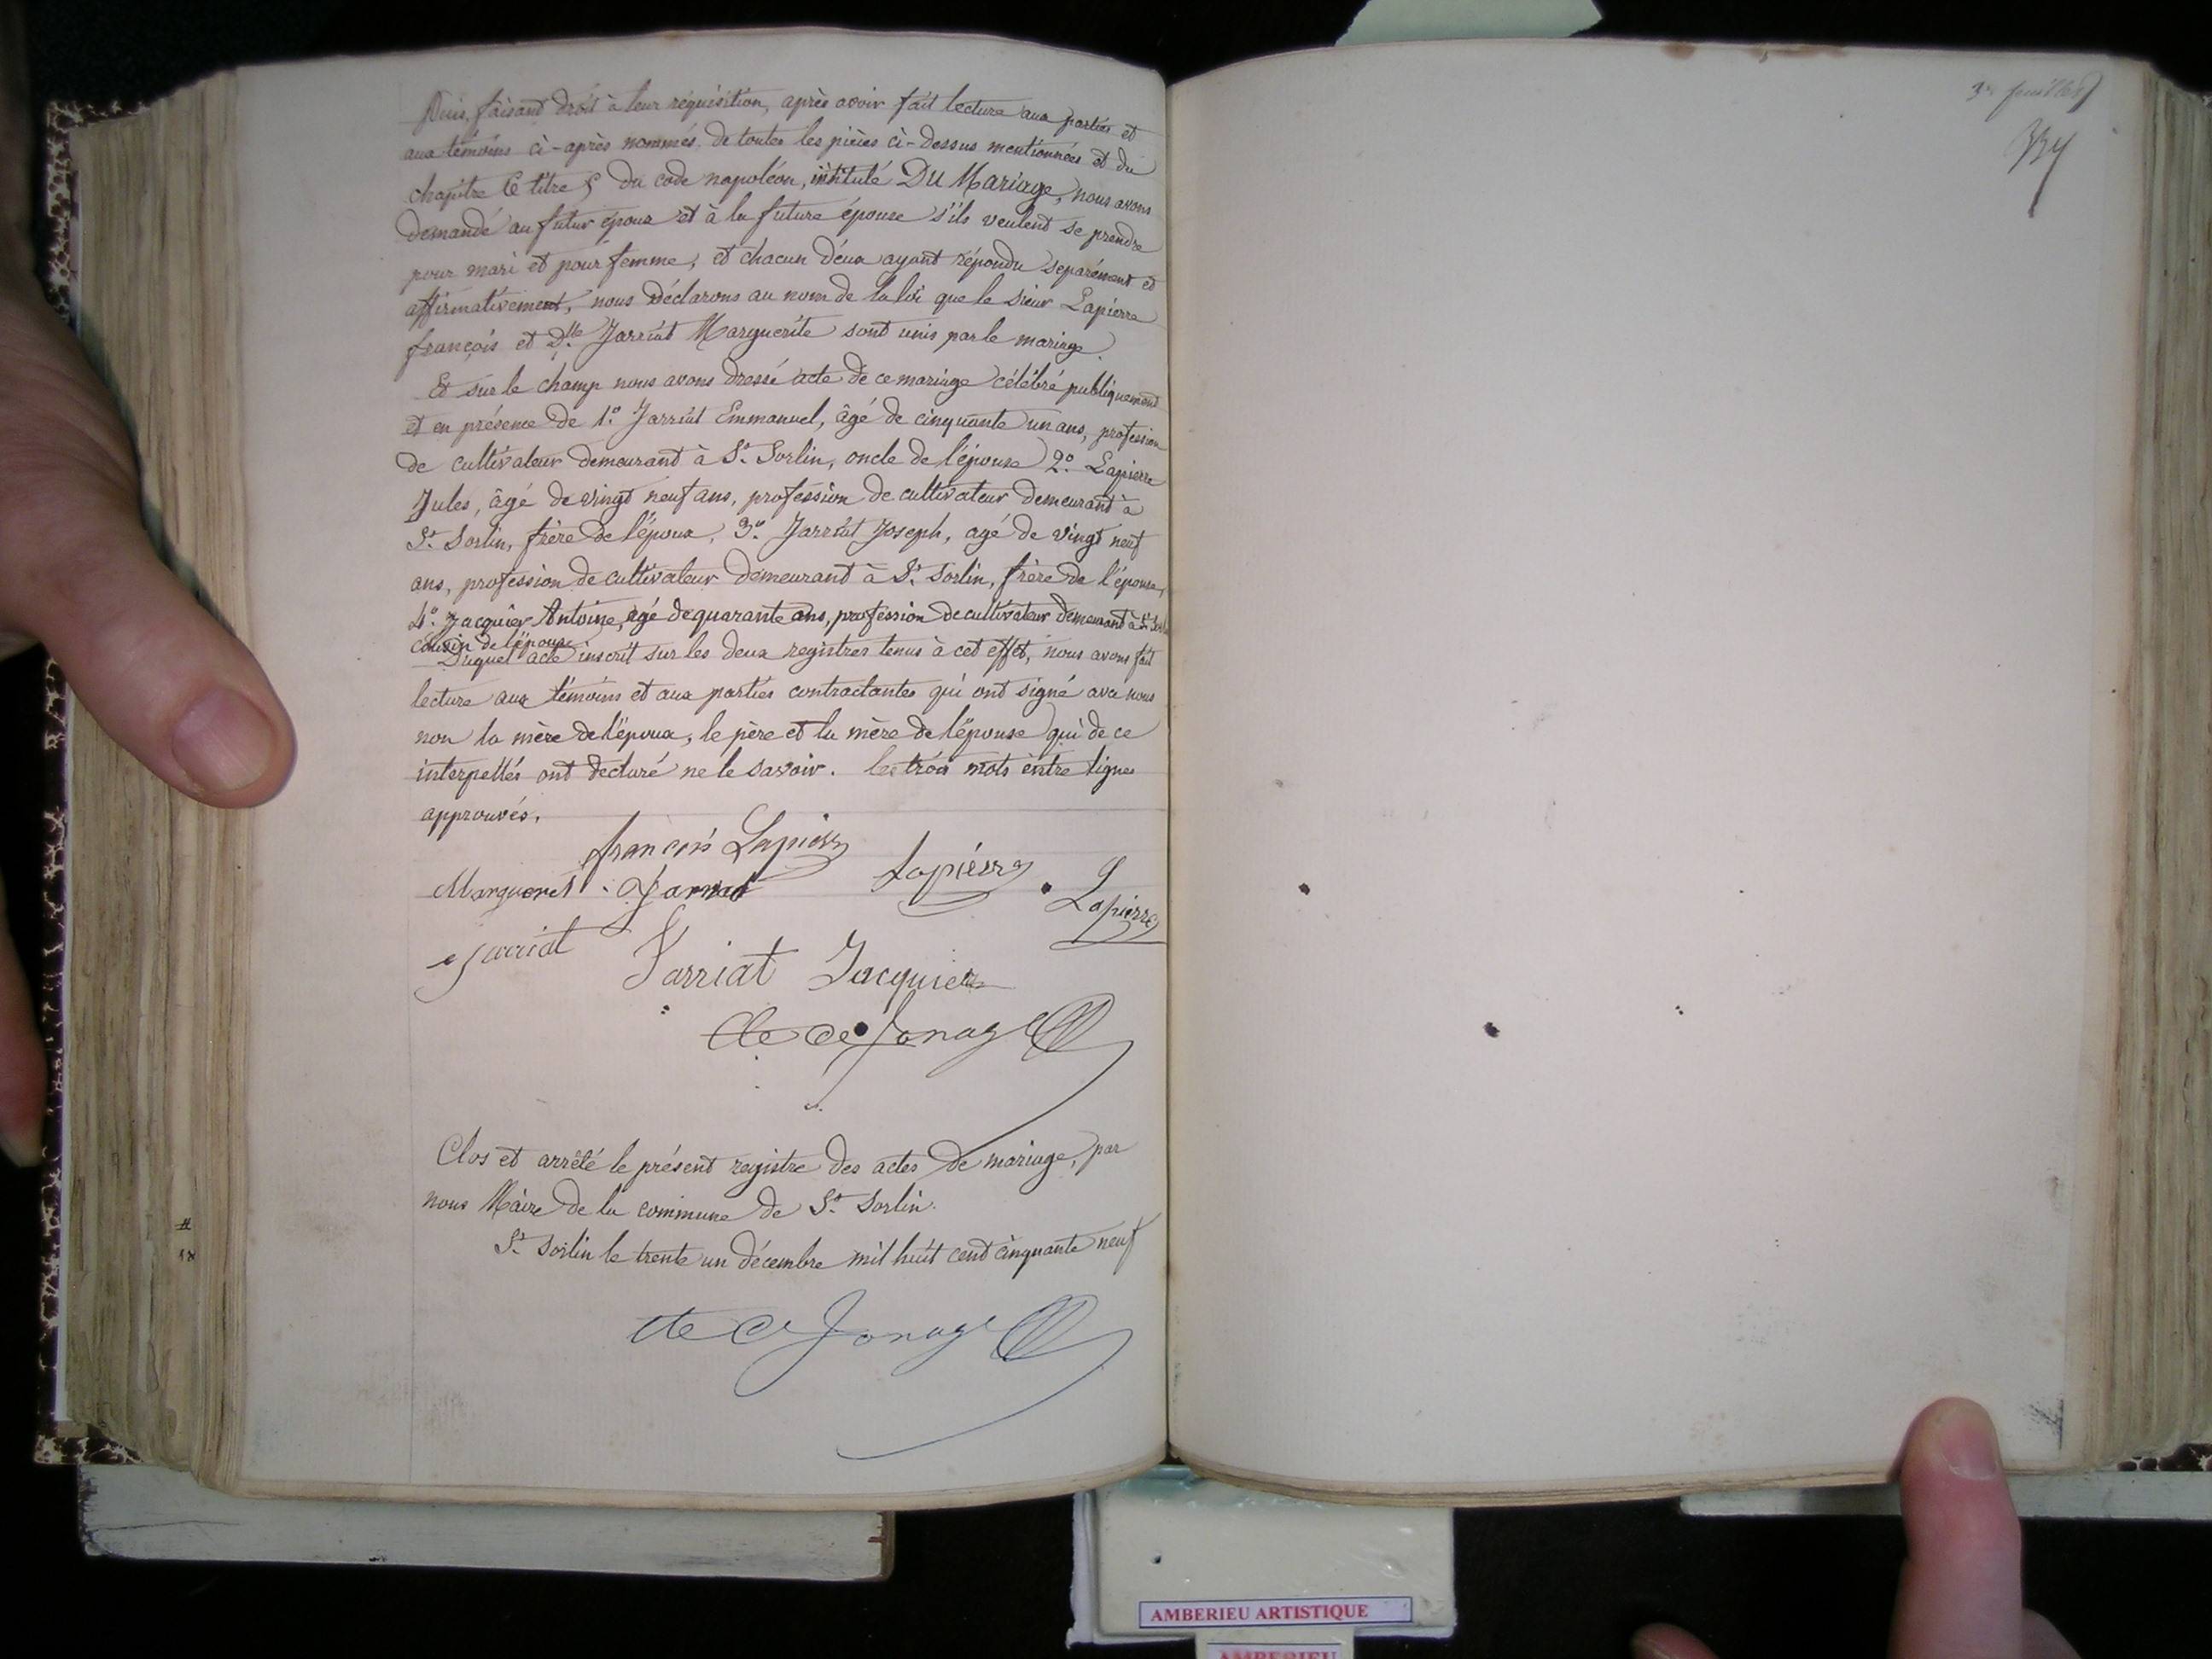 Puis, faisant droit à leur réquisition, après avoir fait lecture aux parties et
aux témoins ci-après nommés de toutes les pièces ci-dessus mentionnées et du
chapitre 6 titre 5 du code napoléon, intitulé DU Mariage, nous avons
demandé au futur époux et à la future épouse s'ils veulent se prendre
pour mari et pour femme, et chacun d'eux ayant répondu separément et
affirmativement, nous déclarons au nom de la loi que le sieur Lapierre
françois et Dlle Jarriat Marguerite sont unis par le mariage.
Et sur le champ nous avons dressé acte de ce mariage célébré publiquement
et en présence de 1.° Jarriat Emmanuel, âgé de cinquante un ans, profession
de cultivateur demeurant à St. Sorlin, oncle de l'épouse 2.° Lapierre
Jules, âgé de vingt neuf ans, profession de cultivateur demeurant à
St. Sorlin, frère de l'époux, 3.° Jarriat Joseph, agé de vingt neuf
ans, profession de cultivateur demeurant à St. Sorlin, frère de l'épouse,
4.° Jacquier Antoine, agé de quarante ans, profession de cultivateur demeurant à St. Sorlin
cousin de l'épouse
Duquel acte inscrit sur les deux registres tenus à cet effet, nous avons fait
lecture aux témoins et aux parties contractantes qui ont signé avec nous
non la mère de l'époux, le père et la mère de l'épouse qui de ce
interpellés ont declaré ne le savoir. les trois mots entre lignes
approuvés.
françois Lapierre
Marguerit Jarriat Lapierre J Lapierre
Jarriat Jarriat Jacquier
Cte de Jonage
Clos et arrêté le présent registre des actes de mariage, par
nous Maire de la commune de St. Sorlin.
St. Sorlin le trente un décembre mil huit cent cinquante neuf
Cte de Jonage
18
AMBERIEU ARTISTIQUE
AMBERIEU